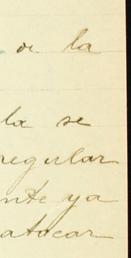 de la
la se
regular
nte ya
atacar